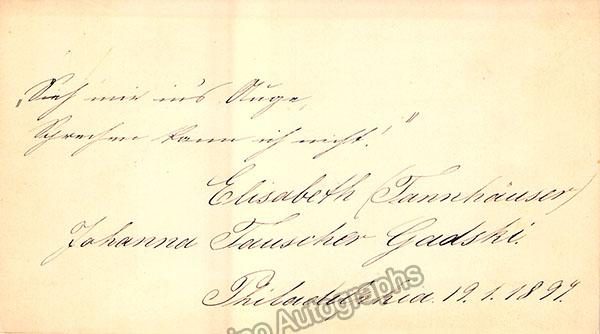 „Sieh mir in's Auge,
Sprechen kann ich nicht!"
Elisabeth (Tannhäuser)
Johanna Tauscher Gadski.
Philadelphia. 19.1.1897.
Autographs